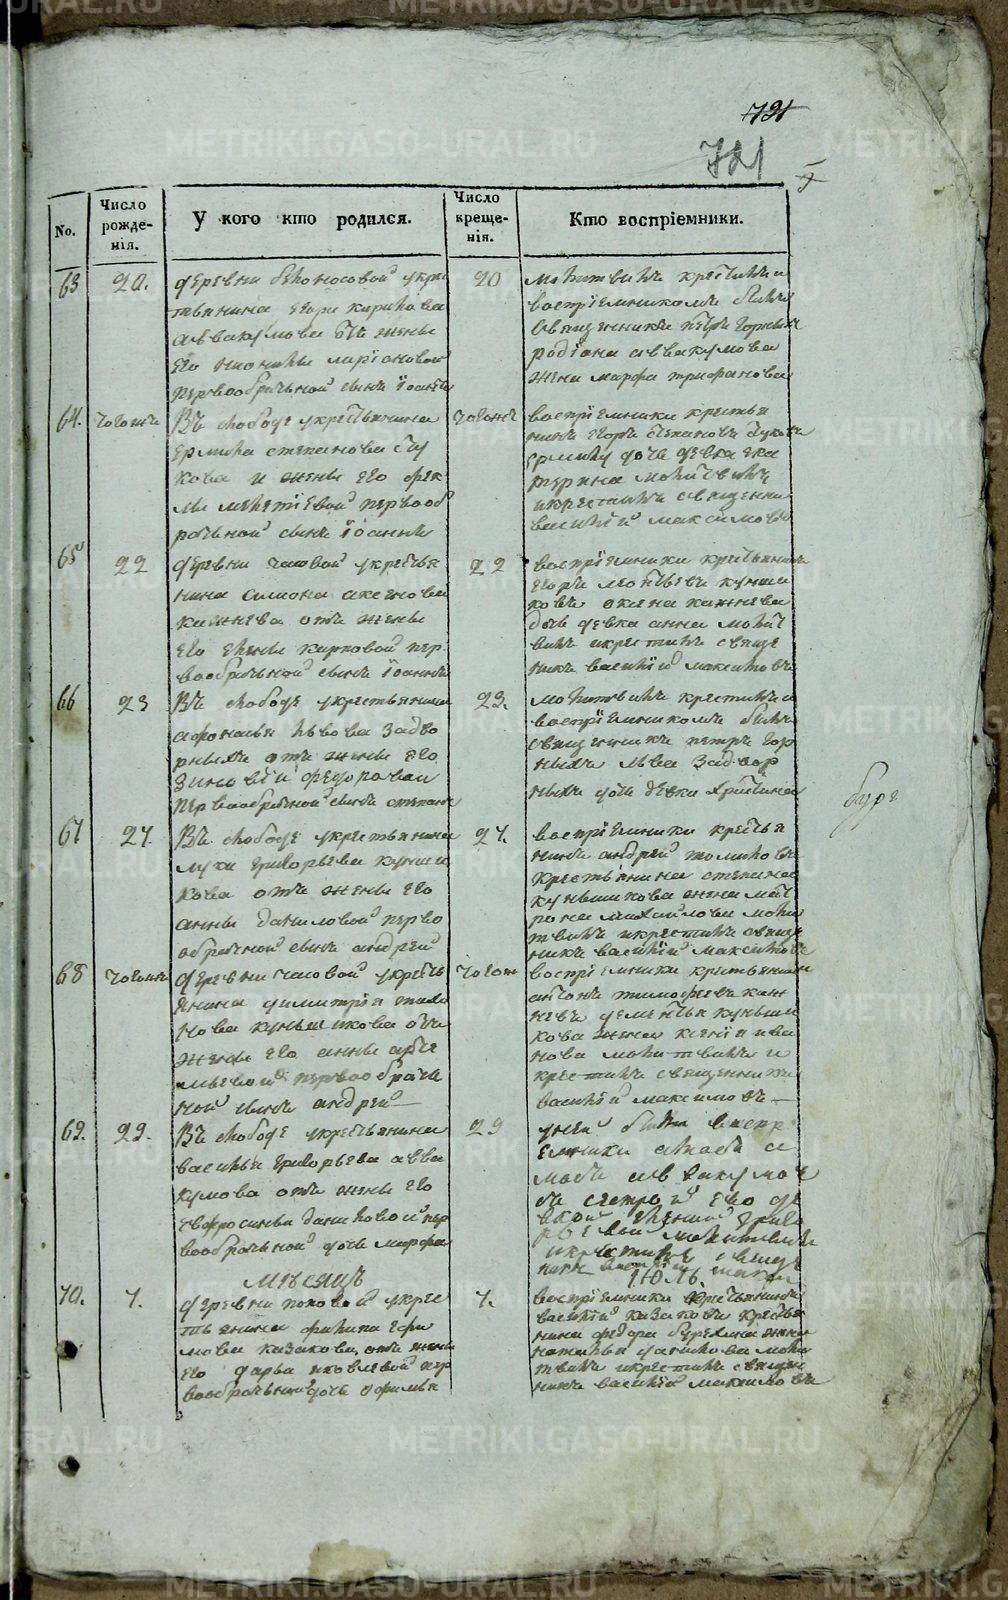 721
721
No.
Число рожде-нія.
У кого кто родился.
Число креще-нія.
Кто воспріемники.
63
20.
деревни белоносовой укре
стьянина егора кирилова
аввакумова отъ жены
его иларіоновой
первообрачьной сынъ Іоаннъ
20
молитвилъ крестилъ и
воспріемникомъ былъ
священникъ петръ горныхъ
родіона аввакумова
жена марфа трифанова
64.
тогожъ
Въ слободе укрестьянина
ермила степанова
кова и жены его фек
лы первооб
рачьной сынъ Іоаннъ
тогожъ
воспріемники крестья
нинъ егоръ степановъ
ермилы дочь девка ека
терина молитвилъ
икрестилъ священни
василій максимовъ
65
22
деревни часовой укрестья
нина симиона
кажнева отъ жены
его елены карповой пер
вообрачьной сынъ Іоаннъ
22
воспріемники крестьянинъ
егоръ леонтьевъ куньши
ковъ кажнева
дочь девка анна молит
вилъ икрестилъ свяще
никъ василій максимовъ
66
23
Въ слободе укрестьянина
афонасья львова задво
рныхъ отъ жены его
зиновіи федоровой
первообрачьной сынъ степанъ
23.
молитвилъ крестилъ и
воспріемникомъ былъ
священникъ петръ гор
ныхъ льва задвор
ныхъ дочь девка христина
67
27.
Въ слободе укрестьянина
луки григорьева куньши
кова отъ жены его
анны даниловой перво
обрачьной сынъ андрей
27.
воспріемники крестья
нинъ андрей
крестьянина степана
куньшикова жена мат
рона михайлова моли
твилъ икрестилъ свяще
никъ василій максимовъ
68
тогожъ
деревни часовой укресть
янина димитрія тихо
нова куньшикова отъ
жены его анны
первообрачь
ной сынъ андрей
тогож
воспріемники крестьянинъ
антонъ тимофеевъ каж
невъ деменьтья куньши
кова жена ксенія ива
нова молитвилъ и
крестилъ священникъ
василій максимовъ
69.
29.
Въ слободе укрестьянина
василья григорьева авва
кумова отъ жены его
евфросиньи даниловой пер
вообрачьной дочь марфа
29
унея были воспрі
емники
аввакумов
съ сестрой его де
вкой еленой григо
рьевой молитвилъ
икрестилъ свяще
никъ василій макси
Мѣсяцъ
Іюль.
70.
1.
деревни поповой укрес
тьянина филипа ефи
мова казакова, отъ жены
его дарьи яковлевой пер
вообрачьной дочь офимья
1.
воспріемники крестьянинъ
василій казаковъ крестья
нина федора бурехина жена
наталья данилова моли
твилъ икрестилъ священ
никъ василій максимовъ
буре